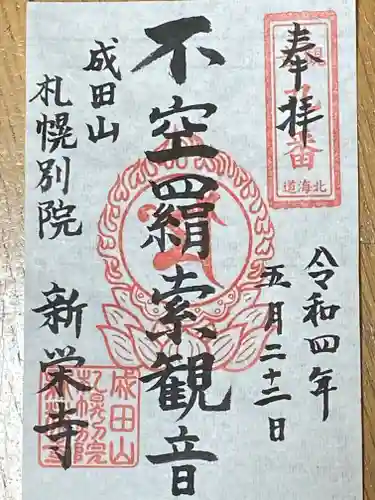 奉拝
番
北海道
令和四年
五月二十二日
不空羂索観音
成田山
札幌別院
新栄寺
成田山
札幌別院